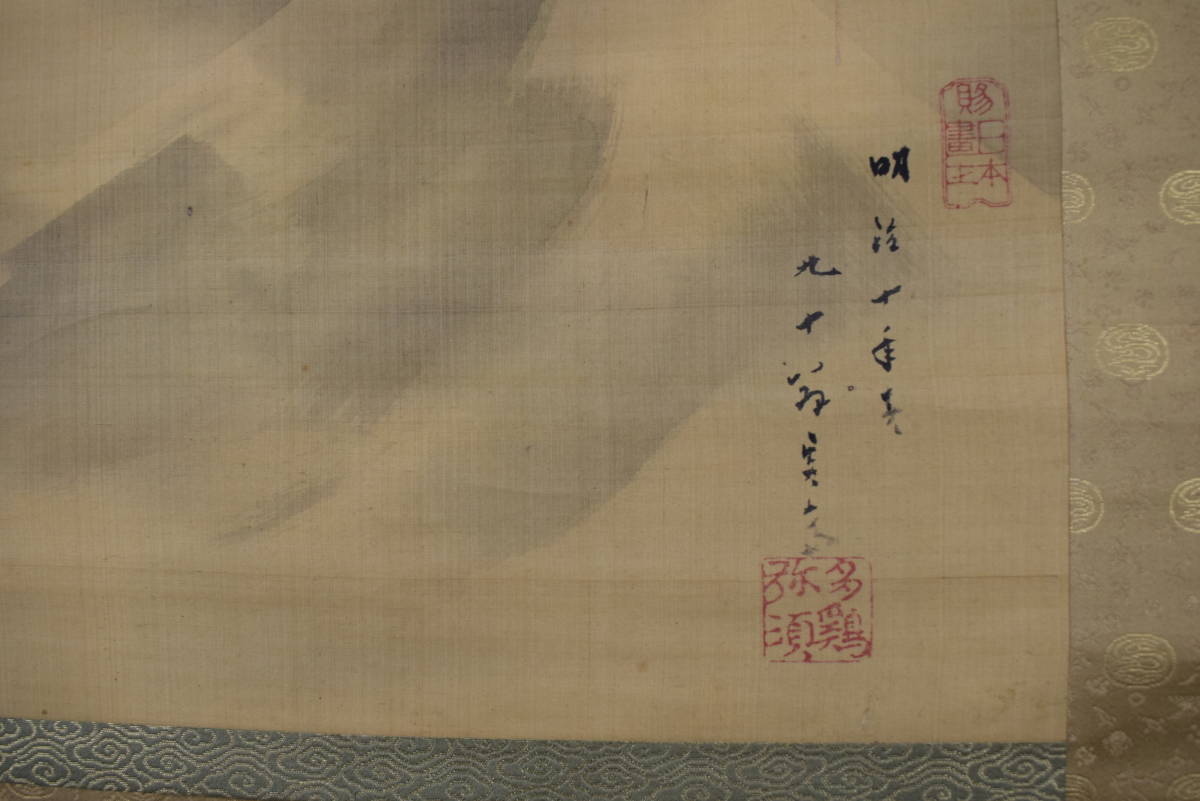 賜日本畫
明治十年
九十翁
多鶏
弥須